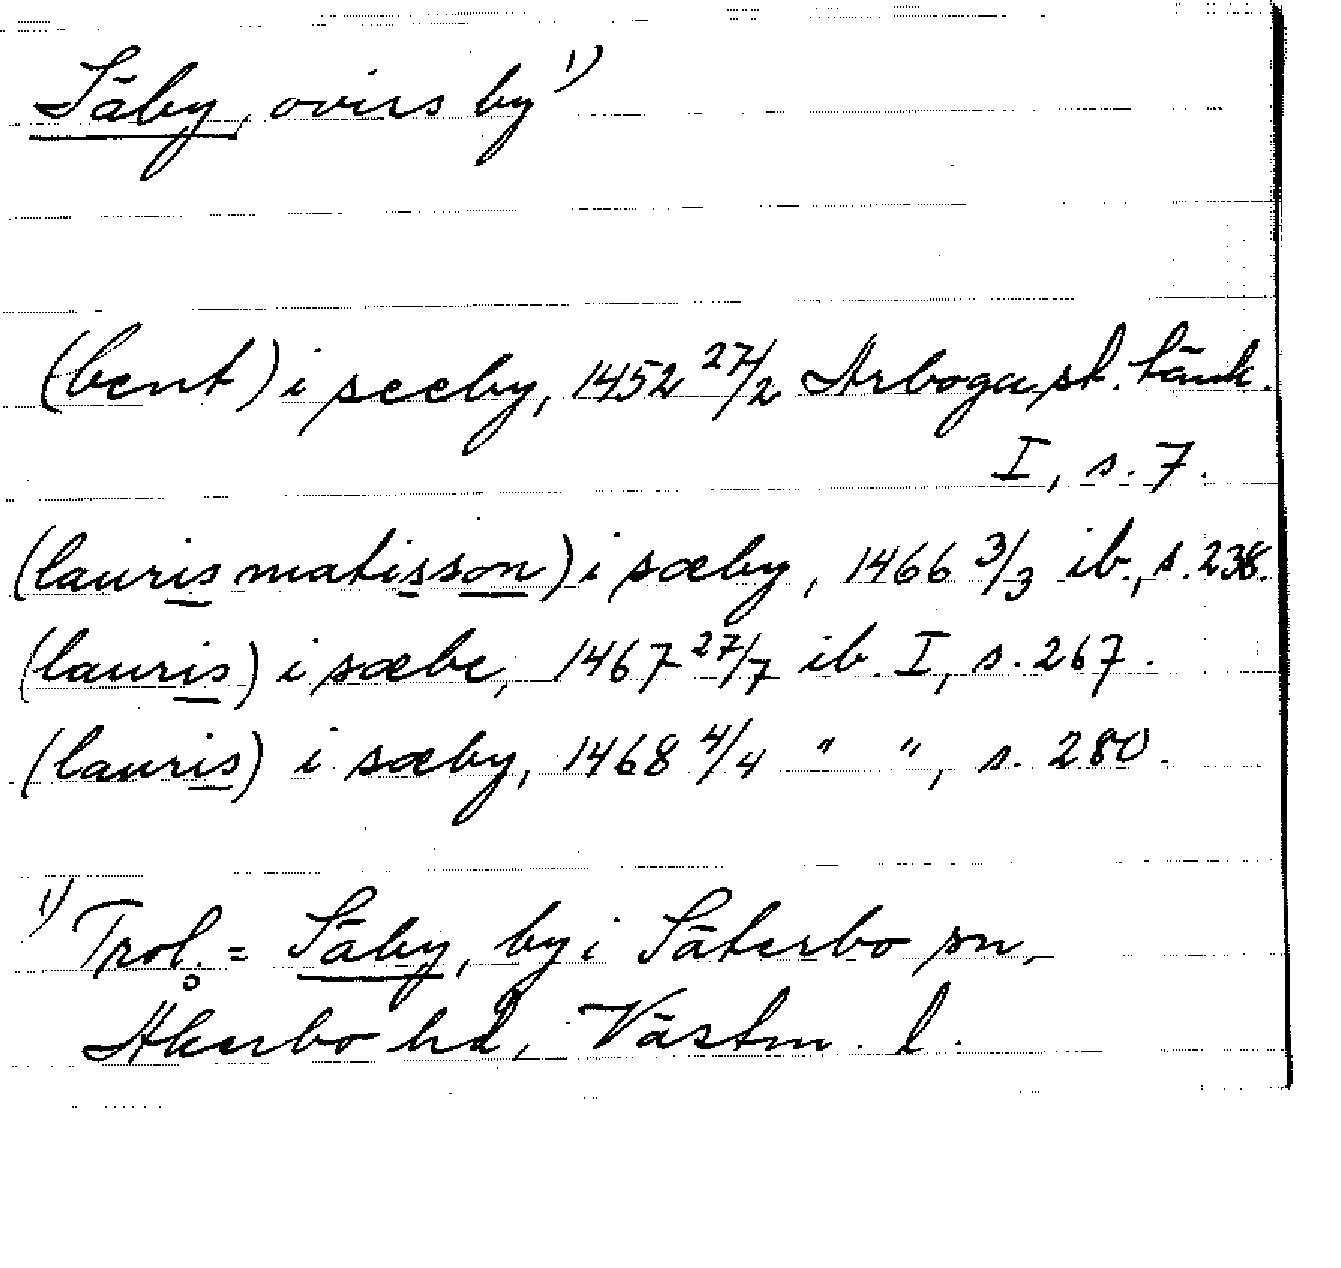 Säby, oviss by 1)
(bent) i seeby, 1452 27/2 Arboga st. tänk.
I, s. 7.
(lauris matisson) i sæby, 1466 3/3 ib., s. 238.
(lauris) i sæbe, 1467 27/7 ib. I, s. 267.
(lauris) i sæby, 1468 4/4 " ", s. 280.
1) Trol. = Säby, by i Säterbo sn,
Åkerbo hd, Västm. l.